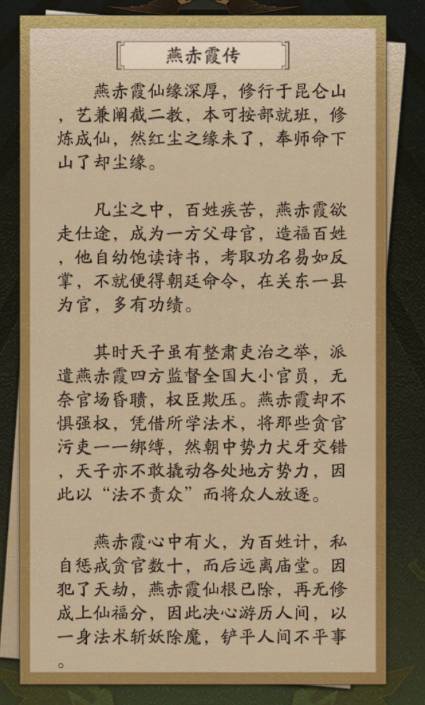 燕赤霞传
燕赤霞仙缘深厚，修行于昆仑山
，艺兼阐截二教，本可按部就班，修
炼成仙，然红尘之缘未了，奉师命下
山了却尘缘。
凡尘之中，百姓疾苦，燕赤霞欲
走仕途，成为一方父母官，造福百姓
，他自幼饱读诗书，考取功名易如反
掌，不就便得朝廷命令，在关东一县
为官，多有功绩。
其时天子虽有整肃吏治之举，派
遣燕赤霞四方监督全国大小官员，无
奈官场昏聩，权臣欺压。燕赤霞却不
惧强权，凭借所学法术，将那些贪官
污吏一一绑缚，然朝中势力犬牙交错
，天子亦不敢撬动各处地方势力，因
此以“法不责众”而将众人放逐。
燕赤霞心中有火，为百姓计，私
自惩戒贪官数十，而后远离庙堂。因
犯了天劫，燕赤霞仙根已除，再无修
成上仙福分，因此决心游历人间，以
一身法术斩妖除魔，铲平人间不平事
。